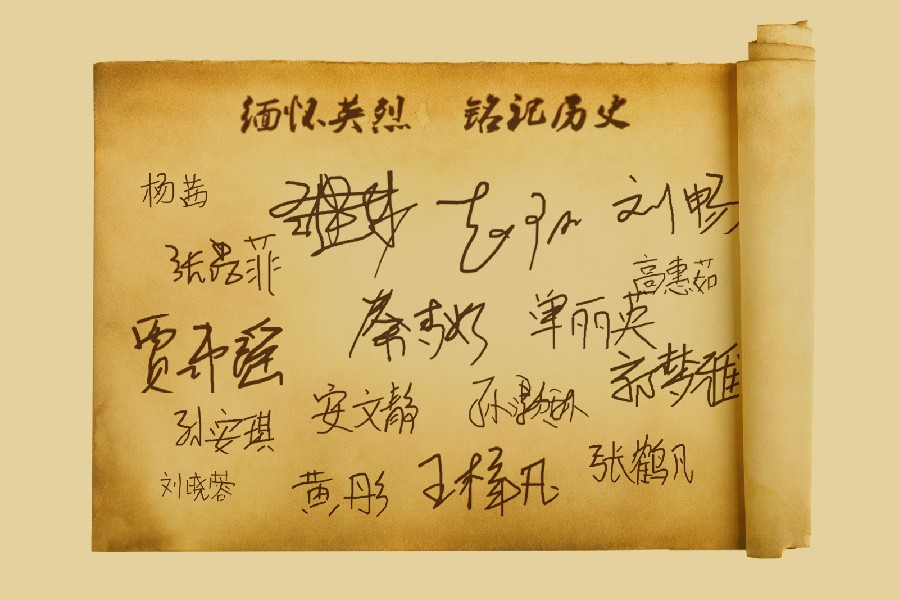 缅怀英烈 铭记历史
杨茜
刘畅
张
高惠茹
单丽英
贾
蔡
郭梦雅
安文静
孙
孙安琪
张鹤凡
刘晓蓉
黄彤
王梓凡